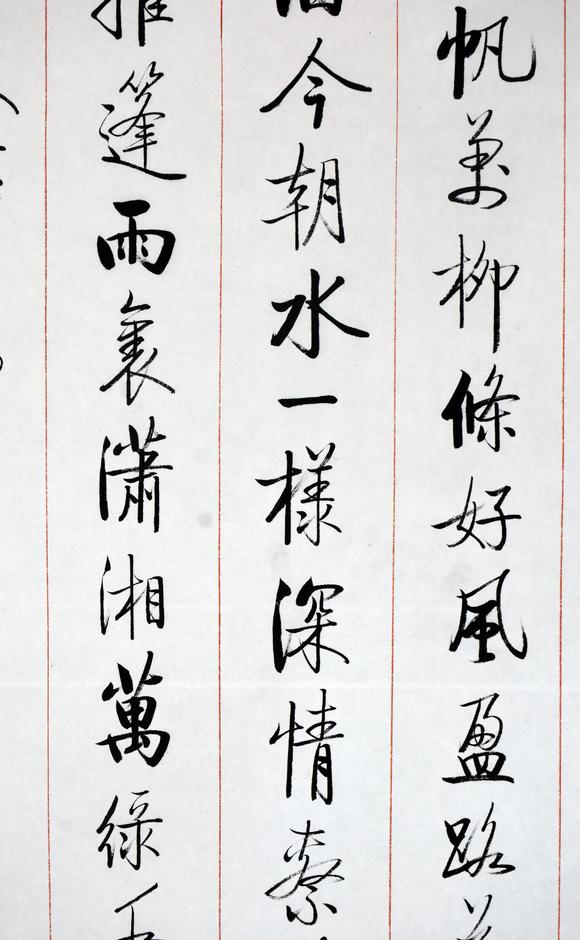 帆剪柳條好風盈路
今朝水一樣深情
推篷雨裏瀟湘萬綠